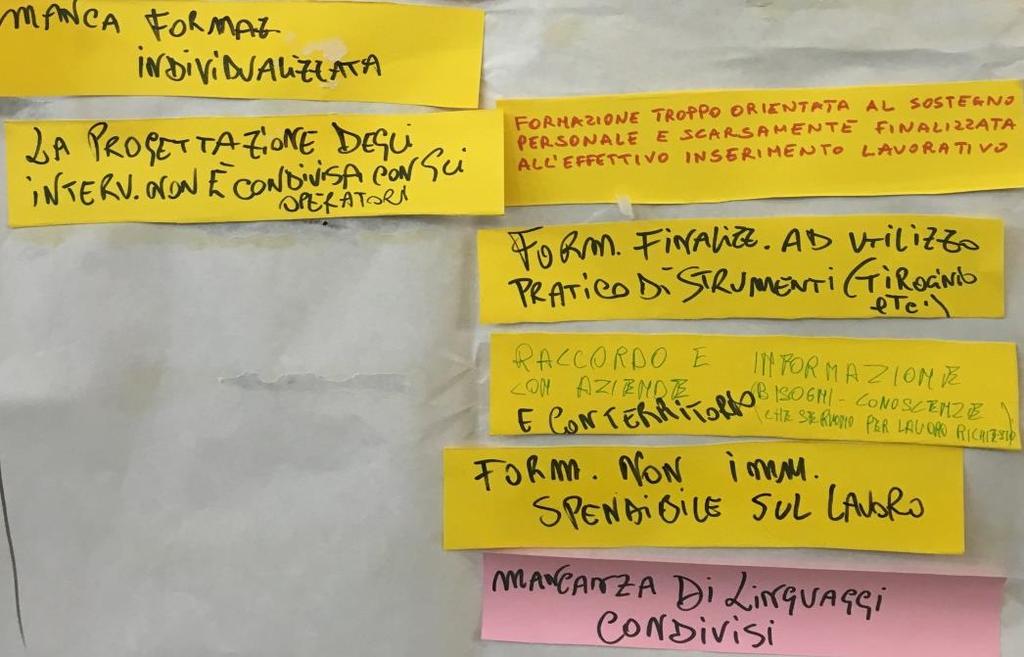 MANCA FORMAZ
INDIVIDUALIZZATA
LA PROGETTAZIONE DEGLI
INTERV. NON È CONDIVISA CON GLI
OPERATORI
FORMAZIONE TROPPO ORIENTATA AL SOSTEGNO
PERSONALE E SCARSAMENTE FINALIZZATA
ALL'EFFETTIVO INSERIMENTO LAVORATIVO
FORM. FINALIZZ. AD UTILIZZO
PRATICO DI STRUMENTI (TIROCINIO
ETC.)
RACCORDO E INFORMAZIONE
CON AZIENDE (BISOGNI - CONOSCENZE
E CON TERRITORIO CHE SERVONO PER LAVORO RICHIESTO)
FORM. NON IMM.
SPENDIBILE SUL LAVORO
MANCANZA DI LINGUAGGI
CONDIVISI